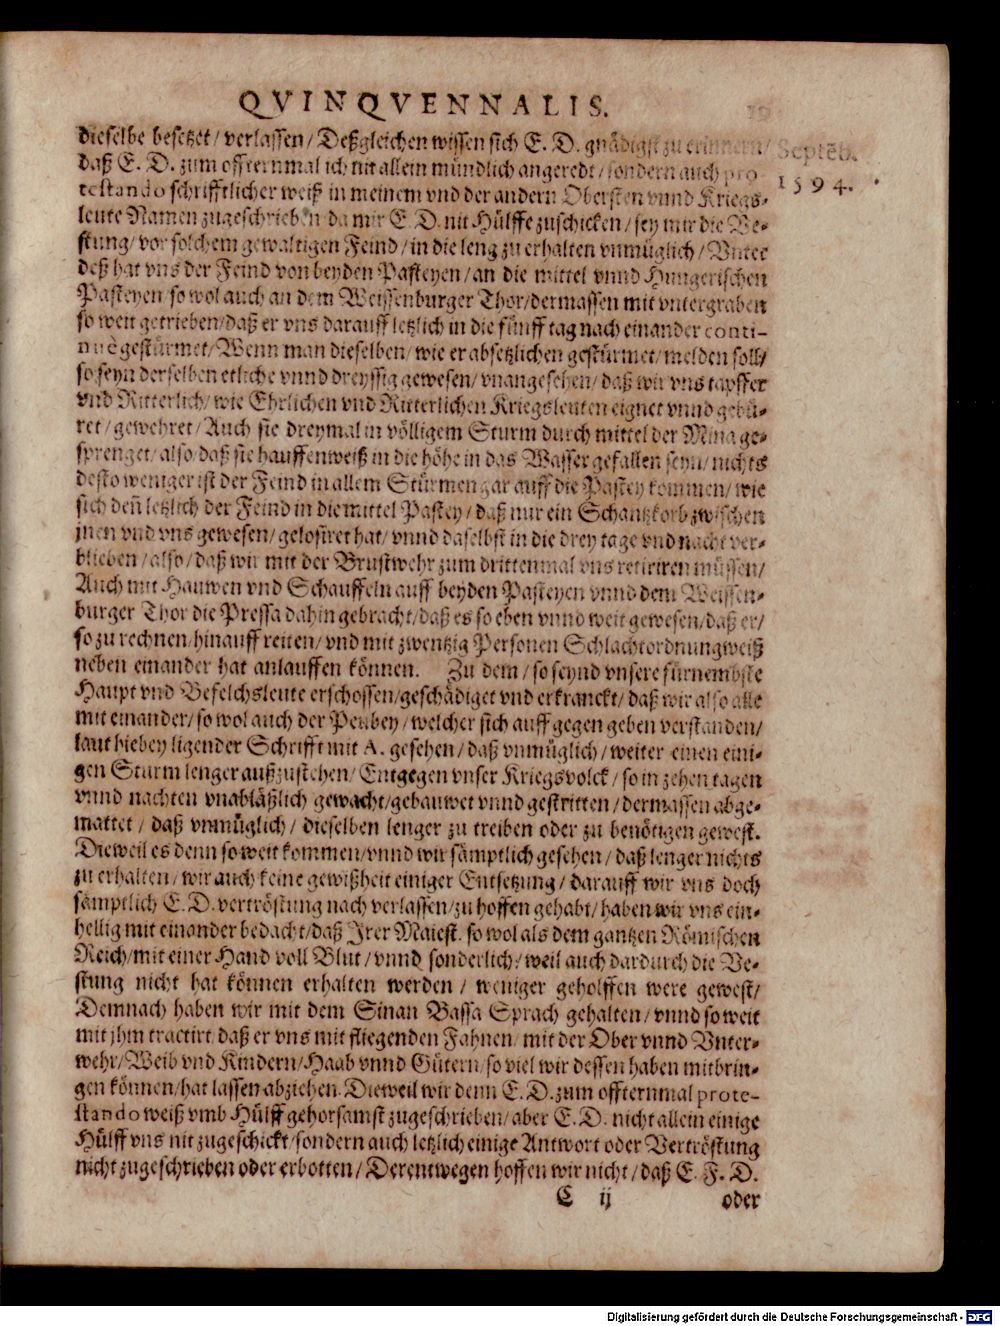 QVINQVENNALIS.
19
dieselbe besetzet / verlassen / Deßgleichen wissen sich E. D. gnädigst zu erinnern /
Septēb.
1594.
daß E. D. zum offternmal ich nit allein mündlich angeredt / sondern auch pro-
testando schrifftlicher weiß in meinem vnd der andern Obersten vnnd Kriegs-
leute Namen zugeschrieben da mir E. D. nit Hülffe zuschicken / sey mir die Ve-
stung / vor solchem gewaltigen Feind / in die leng zu erhalten vnmüglich / Vnter
deß hat vns der Feind von beyden Pasteyen / an die mittel vnnd Hungerischen
Pasteyen / so wol auch an dem Weissenburger Thor / dermassen mit vntergraben
so weit getrieben / daß er vns darauff letzlich in die fünff tag nach einander conti-
nuè gestürmet / Wenn man dieselben / wie er absetzlichen gestürmet / melden soll /
so seyn derselben etliche vnnd dreyssig gewesen / vnangesehen / daß wir vns tapffer
vnd Ritterlich / wie Ehrlichen vnd Ritterlichen Kriegsleuten eignet vnnd gebü-
ret / gewehret / Auch sie dreymal in völligem Sturm durch mittel der Mina ge-
sprenget / also / daß sie hauffenweiß in die höhe in das Wasser gefallen seyn / nichts
desto weniger ist der Feind in allem Stürmen gar auff die Pastey kommen / wie
sich deñ letzlich der Feind in die mittel Pastey / daß nur ein Schantzkorb zwischen
jnen vnd vns gewesen / gelosiret hat / vnnd daselbst in die drey tage vnd nacht ver-
blieben / also / daß wir mit der Brustwehr zum drittenmal vns retiriren müssen /
Auch mit Hauwen vnd Schauffeln auff beyden Pasteyen vnnd dem Weissen-
burger Thor die Pressa dahin gebracht / daß es so eben vnnd weit gewesen / daß er /
so zu rechnen / hinauff reiten / vnd mit zwentzig Personen Schlachtordnungweiß
neben einander hat anlauffen können. Zu dem / so seynd vnsere fürnembste
Haupt vnd Befelchsleute erschossen / geschädiget vnd erkranckt / daß wir also alle
mit einander / so wol auch der Peubey / welcher sich auff gegen geben verstanden /
laut hiebey ligender Schrifft mit A. gesehen / daß vnmüglich / weiter einen eini-
gen Sturm lenger außzustehen / Entgegen vnser Kriegsvolck / so in zehen tagen
vnnd nachten vnabläßlich gewacht / gebauwet vnnd gestritten / dermassen abge-
mattet / daß vnmüglich / dieselben lenger zu treiben oder zu benötigen gewest.
Dieweil es denn so weit kommen / vnnd wir sämptlich gesehen / daß lenger nichts
zu erhalten / wir auch keine gewißheit einiger Entsetzung / darauff wir vns doch
sämptlich E. D. vertröstung nach verlassen / zu hoffen gehabt / haben wir vns ein-
hellig mit einander bedacht / daß Jrer Maiest. so wol als dem gantzen Römischen
Reich / mit einer Hand voll Blut / vnnd sonderlich / weil auch dardurch die Ve-
stung nicht hat können erhalten werden / weniger geholffen were gewest /
Demnach haben wir mit dem Sinan Bassa Sprach gehalten / vnnd so weit
mit jhm tractirt / daß er vns mit fliegenden Fahnen / mit der Ober vnnd Vnter-
wehr / Weib vnd Kindern / Haab vnnd Gütern / so viel wir dessen haben mitbrin-
gen können / hat lassen abziehen. Dieweil wir denn E. D. zum offternmal prote-
stando weiß vmb Hülff gehorsamst zugeschrieben / aber E. D. nicht allein einige
Hülff vns nit zugeschickt / sondern auch letzlich einige Antwort oder Vertröstung
nicht zugeschrieben oder erbotten / Derentwegen hoffen wir nicht / daß E. F. D.
C ij
oder
Digitalisierung gefördert durch die Deutsche Forschungsgemeinschaft - DFG